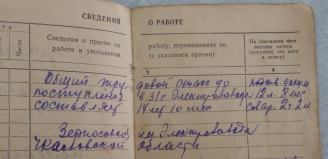 СВЕДЕНИЯ
О РАБОТЕ
Сведения о приеме на
работе и увольнении
работу, перемещениях по
(с указанием причин)
На основании чего
внесена запись
(документ, его дата
и номер)
3
4
Общий тру-
довой стаж до
поступления
в з/с Электрозавода
12 л. 8 мес
составляет
14 лет 10 мес
Зерносовхоз
им. Электрозавода
Чкаловской
области